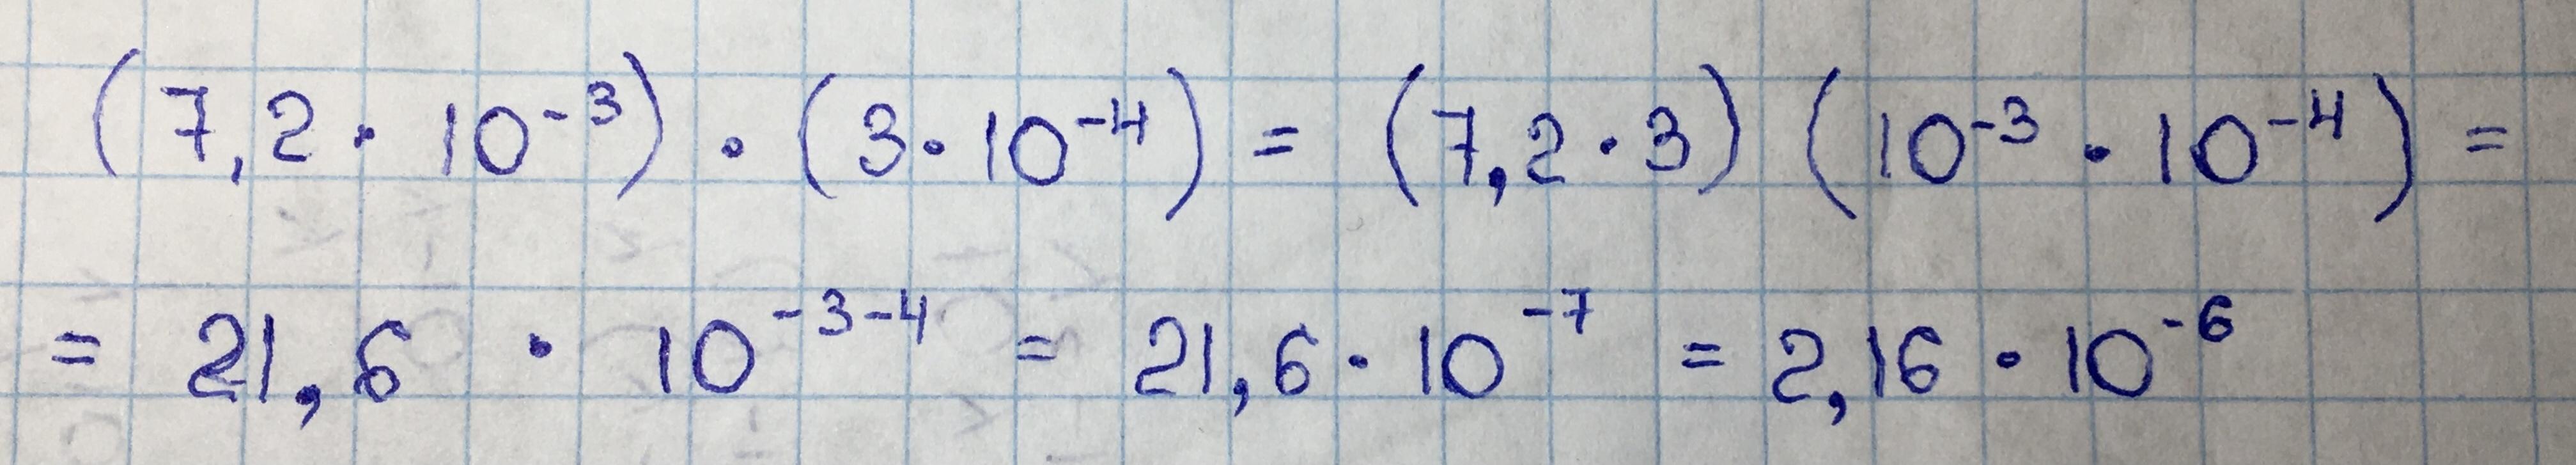 (7,2 · 10⁻³) · (3 · 10⁻⁴) = (7,2 · 3) (10⁻³ · 10⁻⁴) =
= 21,6 · 10⁻³⁻⁴ = 21,6 · 10⁻⁷ = 2,16 · 10⁻⁶